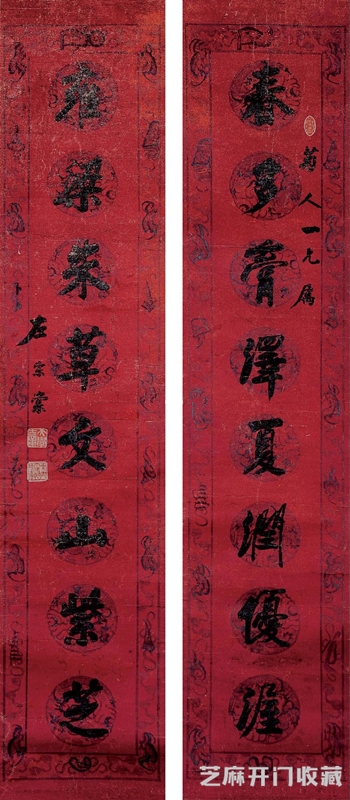 春多膏澤夏潤優渥
菊人一兄屬
雍梁朱草文山紫芝
左宗棠
芝麻开门收藏